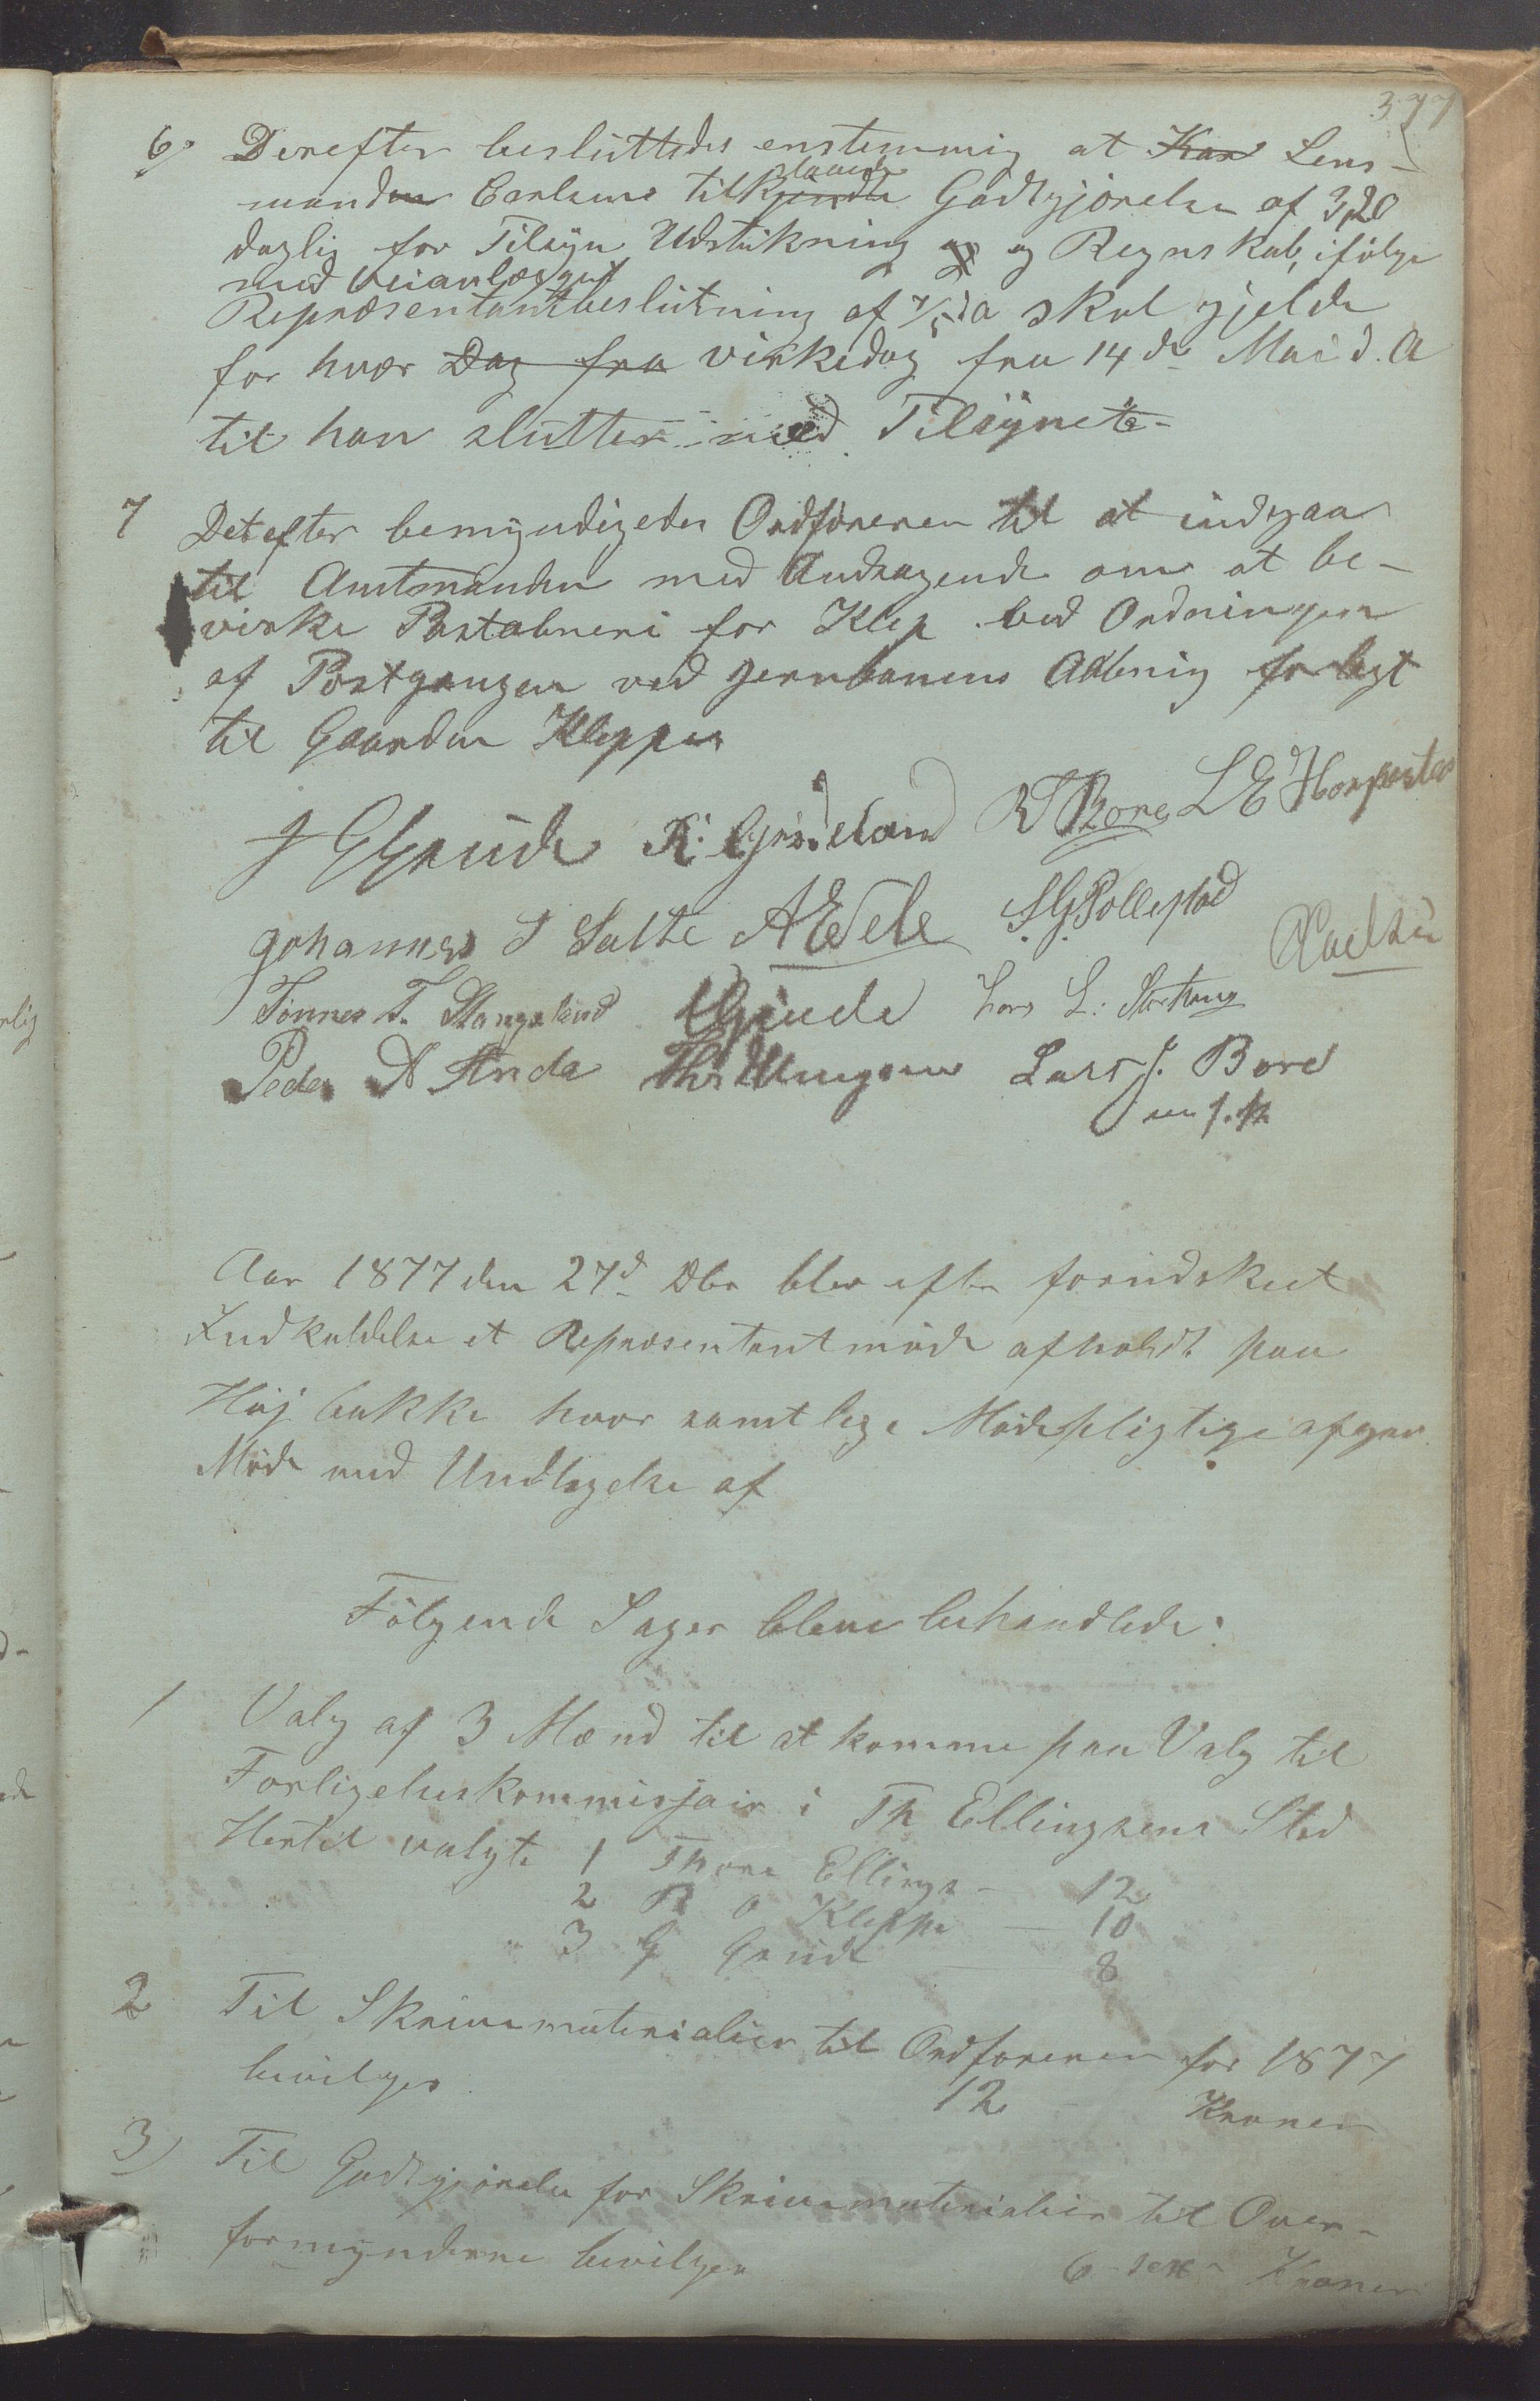 377
6. Derefter besluttedes enstemmig at Kar Lens-
manden Carlsens tilkjendte staaede Godtgjörelse af 3,20
daglig for Tilsyn Udstikning og og Regnskab, ifölge
med Veianlægget
Repræsentantbeslutning af 7/5 d a skal gjelde
for hvær Dag fra virkedag fra 14de Mai d. A
til han slutter med Tilsynet
7 Detefter bemyndigedes Ordföreren til at indgaa
til Amtmanden med Andragende om at be-
virke Postabneri for Klep ved Ordningen
af Postgangen ved Jernbanens Aabnig forlagt
til Gaarden Kleppe
J G Grude K. Grödeland R T Bore L E Horpestad
Johannes J Salte A E Wele S. G. Pollestad
Tönnes T. Stangeland Grude Lars L. Storhaug
Peder A Anda Ths Ellingsen Lars J. Bore
m f. P.
Aar 1877 den 27d Dbr blev efter forudskeet
Indkaldelse et Repræsentantmöde afholdt paa
Höj bakke hvor samtlege Mödepligtige afgav
Möde med Undtagelse af
Fölgende Sager bleve behandlede:
1 Valg af 3 Mænd til at komme paa Valg til
Forligelseskommisjair i Th Ellingsens Sted
Hertil valgte 1 Thore Ellings - 12
2 R O Kleppe — 10
3 G Grude — 8
2 Til Skrivematerialier til Ordföreren for 1877
bevilges 12 Kroner
3) Til Godtgjörelse for Skrivematerialier til Over-
formynderne bevilges 6 sex Kroner